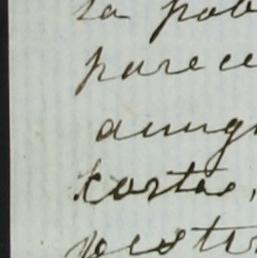 la pob
parece
aunq
costas,
vestir